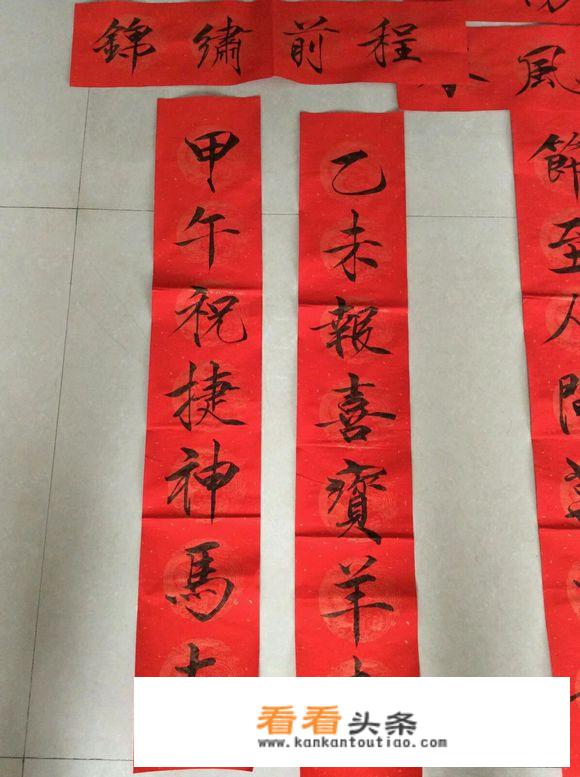 錦繡前程
甲午祝捷神馬
乙未報喜寳羊
風
節至人間
看看头条
www.kankantoutiao.com